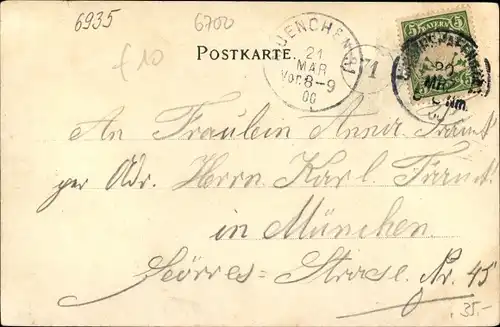 6935
6700
£10
POSTKARTE.
MUENCHEN
21
MAR
Vor. 8-9
00
71
5 BAYERN 5
20
MRZ
Nm.
An Fräulein Anna
per Adr. Herrn Karl
in München
Görres-Strasse. Nr. 45
35.-